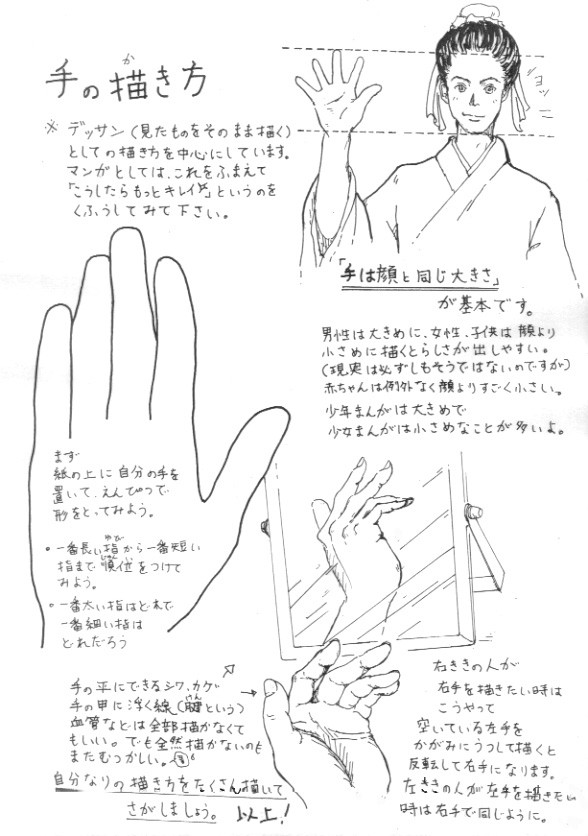 手の描き方
か
※ デッサン(見たものをそのまま描く)
としての描き方を中心にしています。
マンガとしては、これをふまえて
「こうしたらもっとキレイだ」というのを
くふうしてみて下さい。
「手は顔と同じ大きさ」
が基本です。
男性は大きめに、女性、子供は顔より
小さめに描くとらしさが出しやすい。
(現実は必ずしもそうではないのですが)
赤ちゃんは例外なく顔よりすごく小さい。
少年まんがは大きめで
少女まんがは小さめなことが多いよ。
まず
紙の上に自分の手を
置いて、えんぴつで
形をとってみよう。
・一番長い指から一番短い
指まで順位をつけて
みよう。
・一番太い指はどれで
一番細い指は
どれだろう
手の平にできるシワ、カゲ
手の甲に浮く線(腱という)
血管などは全部描かなくて
もいい。でも全然描かないのも
またむつかしい。
自分なりの描き方をたくさん描いて
さがしましょう。 以上!
右ききの人が
右手を描きたい時は
こうやって
空いている左手を
かがみにうつして描くと
反転して右手になります。
左ききの人が左手を描きたい
時は右手で同じように。